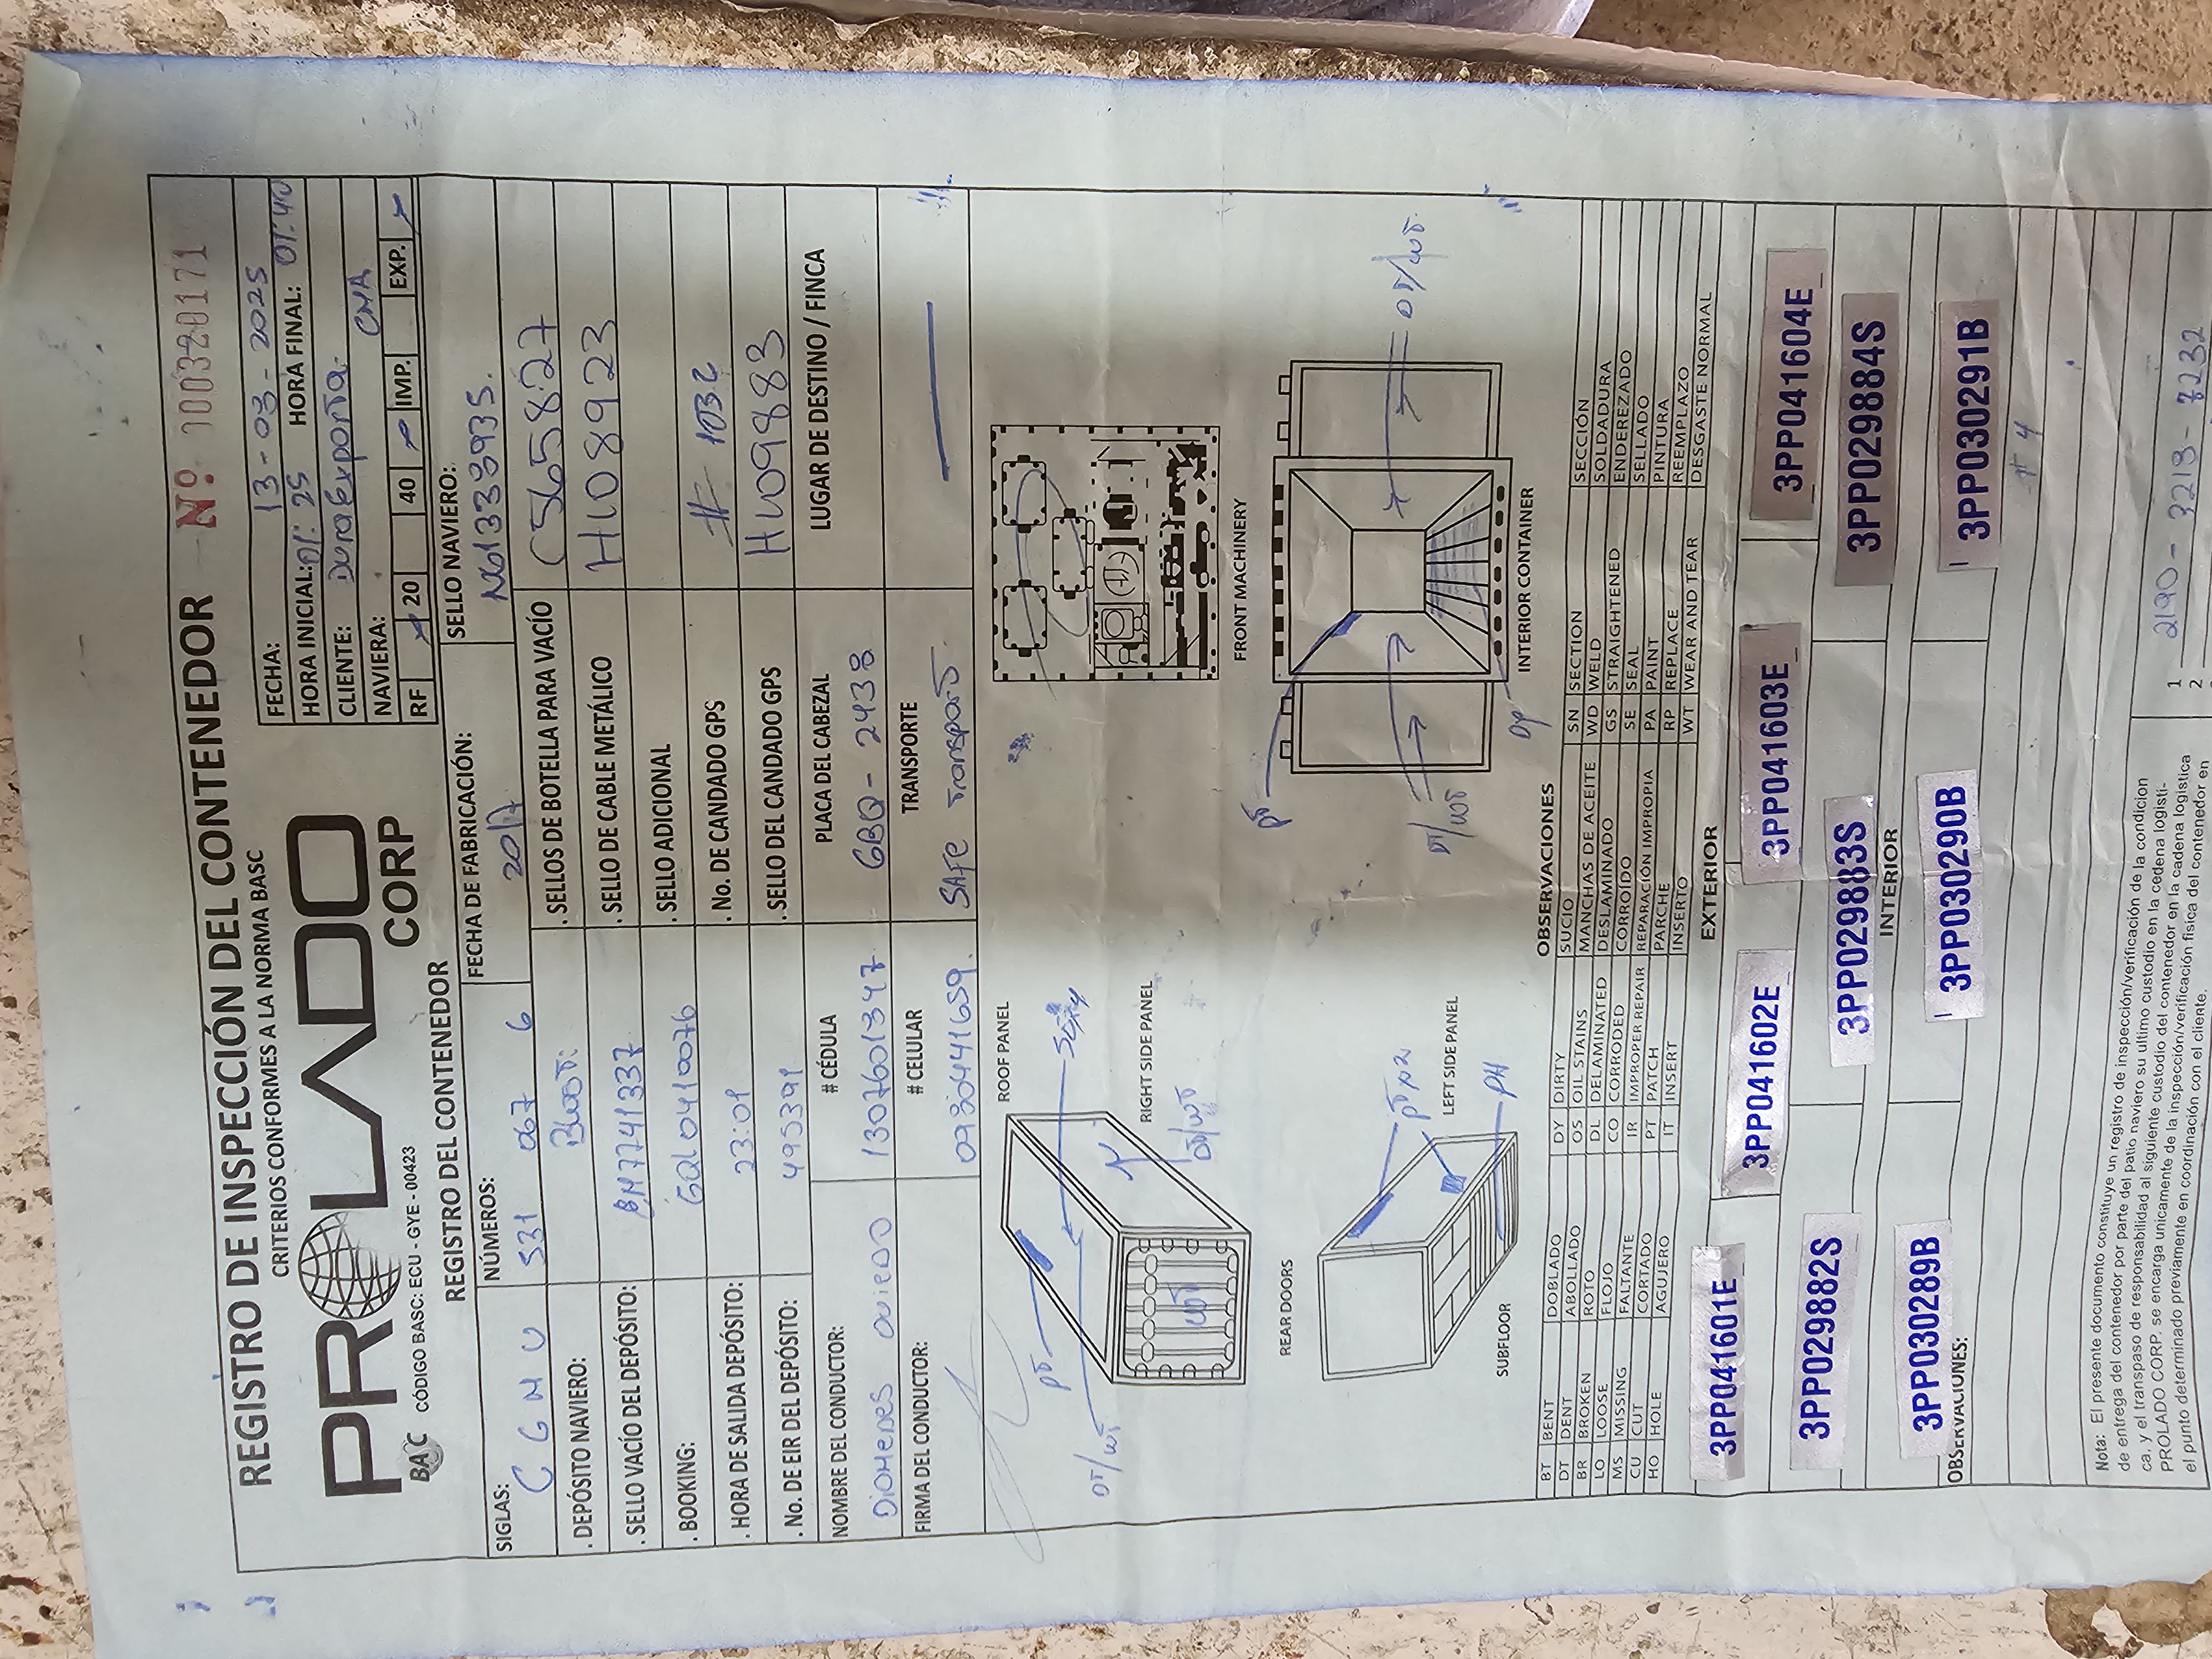 REGISTRO DE INSPECCIÓN DEL CONTENEDOR Nº 000320171
CRITERIOS CONFORMES A LA NORMA BASC
PROLADO
CORP
BASC CÓDIGO BASC: ECU - GYE - 00423
FECHA: 13-03-2025
HORA INICIAL: 01:25 HORA FINAL: 01:40
CLIENTE: DuraExporta
NAVIERA: CMA
RF 20 40 IMP. EXP.
REGISTRO DEL CONTENEDOR
SIGLAS: CGMU
NÚMEROS: 531 067 6
FECHA DE FABRICACIÓN: 2017
SELLO NAVIERO:
. DEPÓSITO NAVIERO:
. SELLOS DE BOTELLA PARA VACÍO C565827
. SELLO VACÍO DEL DEPÓSITO:
. SELLO DE CABLE METÁLICO HL08923
. BOOKING: GQL0410076
. SELLO ADICIONAL
. HORA DE SALIDA DEPÓSITO: 23:01
. No. DE CANDADO GPS # 1032
. No. DE EIR DEL DEPÓSITO: 495391
. SELLO DEL CANDADO GPS HL09883
NOMBRE DEL CONDUCTOR: Diomenes Oviedo
# CÉDULA 1307601347
PLACA DEL CABEZAL GBQ-2438
LUGAR DE DESTINO / FINCA
FIRMA DEL CONDUCTOR:
# CELULAR
TRANSPORTE SAFe Transport
ROOF PANEL
PT
DT/WT
RIGHT SIDE PANEL
WT
DT/WT
REAR DOORS
FRONT MACHINERY
PT
PT x2
DT/WT
DT/WT
LEFT SIDE PANEL
PH
SUBFLOOR
DY
INTERIOR CONTAINER
OBSERVACIONES
BT BENT DOBLADO DY DIRTY SUCIO SN SECTION SECCIÓN
DT DENT ABOLLADO OS OIL STAINS MANCHAS DE ACEITE WD WELD SOLDADURA
BR BROKEN ROTO DL DELAMINATED DESLAMINADO GS STRAIGHTENED ENDEREZADO
LO LOOSE FLOJO CO CORRODED CORROÍDO SE SEAL SELLADO
MS MISSING FALTANTE IR IMPROPER REPAIR REPARACIÓN IMPROPIA PA PAINT PINTURA
CU CUT CORTADO PT PATCH PARCHE RP REPLACE REEMPLAZO
HO HOLE AGUJERO IT INSERT INSERTO WT WEAR AND TEAR DESGASTE NORMAL
EXTERIOR
3PP041601E 3PP041602E 3PP041603E 3PP041604E
3PP029882S 3PP029883S 3PP029884S
INTERIOR
3PP030289B 3PP030290B 3PP030291B
OBSERVACIONES:
# 4
Nota: El presente documento constituye un registro de inspección/verificación de la condicion
de entrega del contenedor por parte del patio naviero su ultimo custodio en la cedena logisti-
ca, y el transpaso de responsabilidad al siguiente custodio del contenedor en la cadena logistica
PROLADO CORP. se encarga unicamente de la inspección/verificación fisica del contenedor en
el punto determinado previamente en coordinación con el cliente.
1 2190 - 3213 - 7232
2